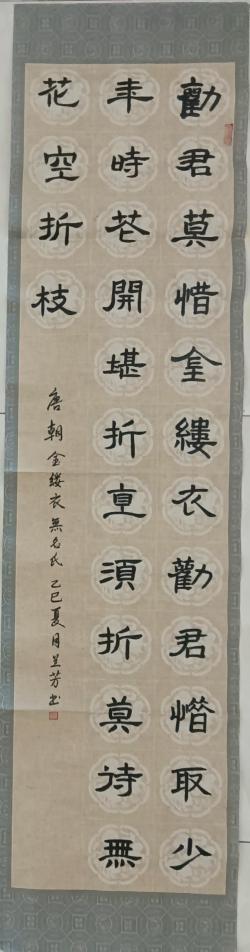 勸君莫惜金縷衣勸君惜取少
年時花開堪折直須折莫待無
花空折枝
唐朝金縷衣無名氏 乙巳夏月兰芳书